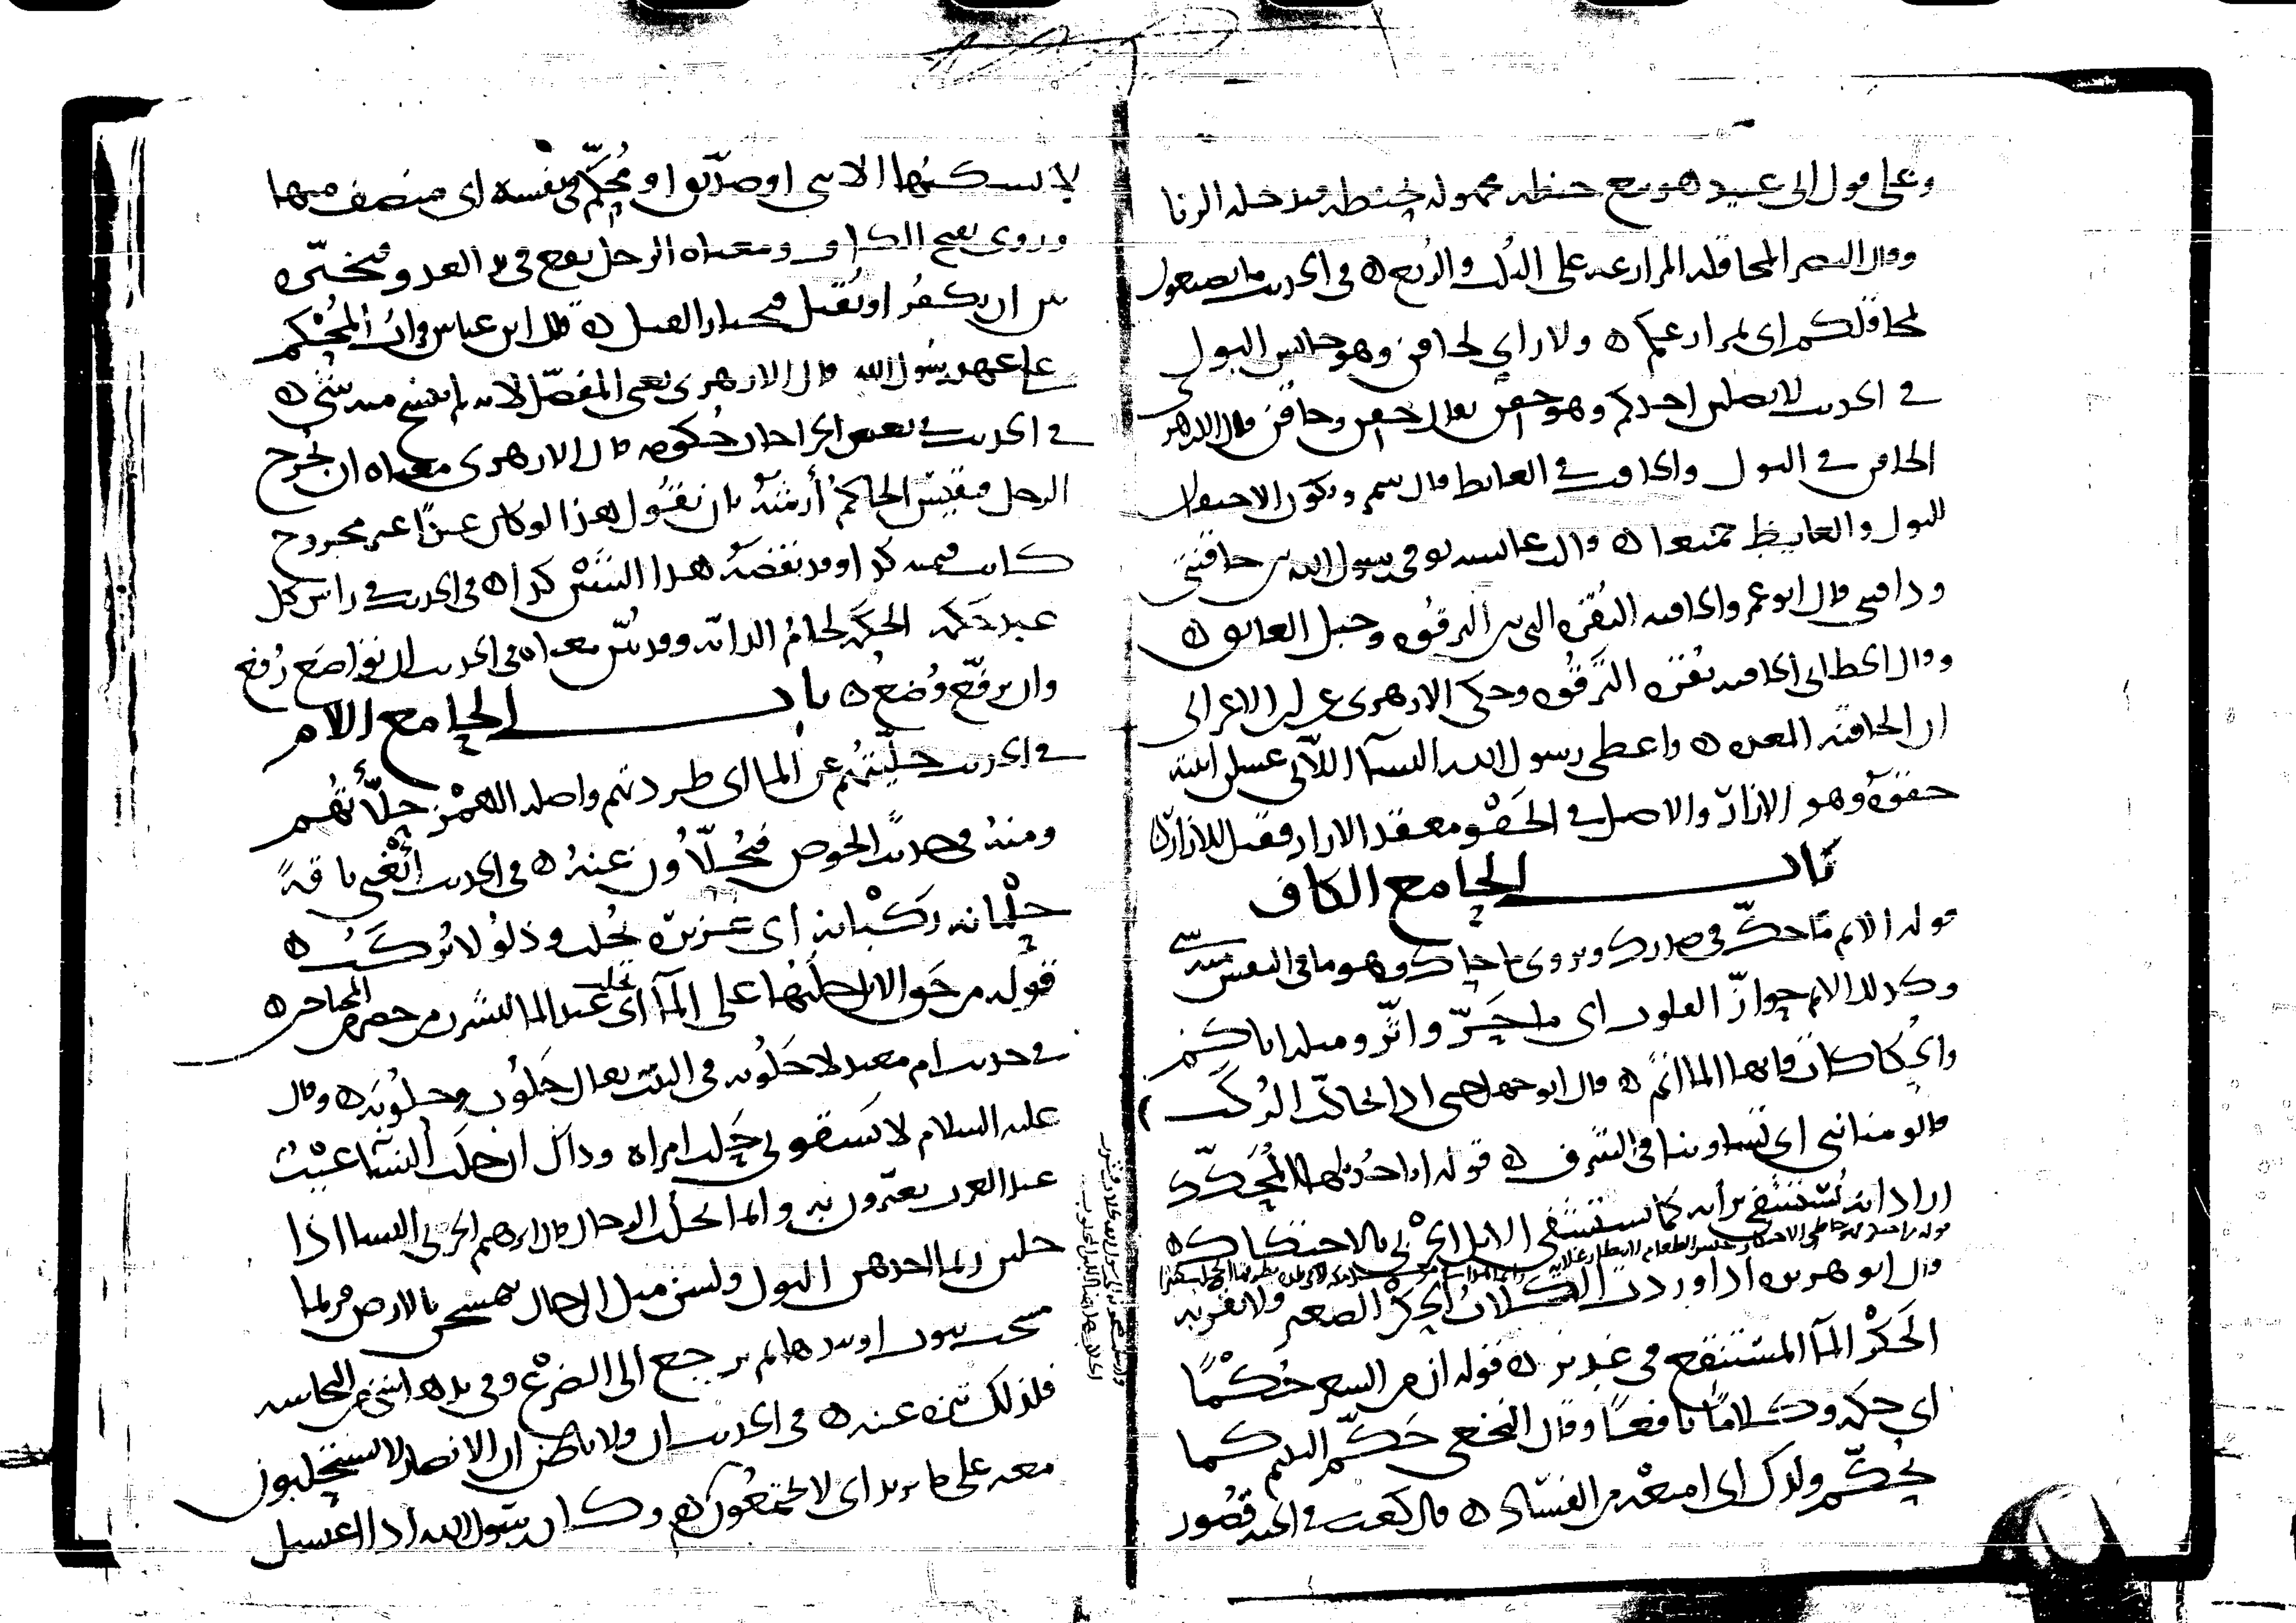 وعلى قول ابي عبيد هو بيع حنطه مجهوله بحنطه فيدخله الربا
وقال الليث المحاقله المزارعه على الثلث والربع ه في الحديث ما تصنعون
بمحاقلكم اي بمزارعكم ه ولا راي لحاقن وهو حابس البول
في الحديث لا يصلين احدكم وهو حقن يقال حقن وحاقن قال الازهري
الحاقن في البول والحاقب في الغايط قال شمر ويكون الاحتقان
للبول والغايط جميعا ه قالت عايشه توفي رسول الله بين حاقنتي
وذاقنتي قال ابو عمرو الحاقنه النقره التي بين الترقوه وحبل العاتق ه
وقال الخطابي الحاقنه نقره الترقوه وحكى الازهري عن ابن الاعرابي
ان الحاقنه المعده ه واعطى رسول الله النسآ اللآتي غسلن ابنته
حقوه وهو الازار والاصل في الحقو معقد الازار فقيل للازار
باب الحا مع الكاف
قوله الاثم ما حكّ في صدرك ويروى ما حاك وهو ما في النفس منه شي
وكذلك الاثم حوازّ القلوب اي ما حَزّ واثّر ومثله اياكم
والحكاكات فانها الماثم ه قال ابو جهل حتى اذا تحاكت الركب
قالوا منا نبي اي تساوينا في الشرف ه قوله انا جذيلها المحكك
اراد انه يُستشفى برأيه كما تستشفي الابل الجربى بالاحتكاك ه
قال ابو هريره اذا وردت الكلاب الحكر الصغير ولا تقربه
الحَكْر المآ المستنقع في غدير ه قوله ان من الشعر حُكْمًا
اي حكمه وكلامًا نافعًا وقال النخعي حَكّم اليتيم كما
تحكّم ولدك اي امنعه من الفساد ه قال كعب في الجنه قصور
لا يسكنها الا نبي او صدّيق او مُحكّم في نفسه اي منصف منها
وروي بفتح الكاف ومعناه الرجل يقع في يد العدو فيخيّره
بين ان يكفر او يُقتل فيختار القتل ه قال ابن عباس قرات المُحْكم
على عهد رسول الله قال الازهري يعني المفصّل لانه لم ينسخ منه شي ه
في الحديث في بعض الجراحات حكومه قال الازهري معناه ان يُجرح
الرجل فيقيس الحاكم أرشه بان يقول هذا لو كان عبدًا غير مجروح
كانت قيمته كذا وقد نقصه هذا الشين كذا ه في الحديث في راس كل
عبد حَكَمه الحكمه لحام الدابّه وقد بيّن معناه في الحديث ان تواضع رُفع
وان يرفّع وُضع ه باب الحا مع اللام
في الحديث حليتهم عن الما اي طردتهم واصله الهمز حلّأتهم
ومنه في حديث الحوض فيُحلّأون عنه ه في الحديث ابغني ناقةً
حلبانه ركبانه اي غزيره تحلب وذلول تركب ه
قوله من حق الابل حلبها على المآ اي تحلب عند الما ليشرب من حضر المحتاجين ه
في حديث ام معبد لا حلوبه في البيت يقال حلوب وحلوبه ه وقال
عليه السلام لا تسقوني حلب امراه وذاك ان حلب النسا عيب
عند العرب يعيّرون به وانما تحلب الرجال قال ابرهيم الحربي النسا اذا
حلبن ربما اخذهن البول وليس مثل الرجال يمسحن بالارض فربما
مسحت ببول او بيدها ثم ترجع الى الضرع وفي يدها شي من النجاسه
فلذلك تنزه عنه ه في الحديث ان ولا باظن ان الانصار لا يستحلبون
معه على ما يريد اي لا يجتمعون ه وكان رسول الله اذا اغتسل